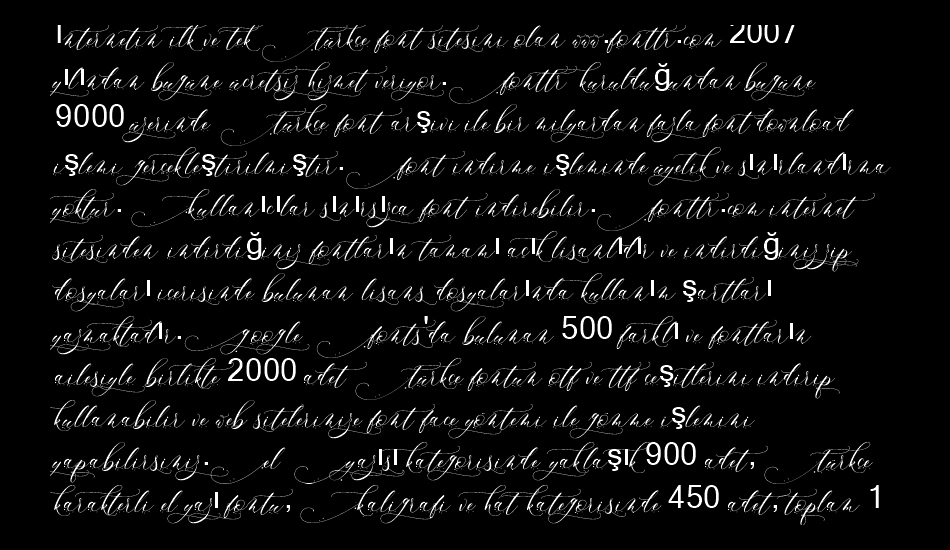 Internetin ilk ve tek Türkçe font sitesini olan www.fonttr.com 2007
yılından bugüne ücretsiz hizmet veriyor. Fonttr kurulduğundan bugüne
9000 üzerinde Türkçe font arşivi ile bir milyardan fazla font download
işlemi gerçekleştirilmiştir. Font indirme işleminde üyelik ve sınırlandırma
yoktur. Kullanıcılar sınırsızca font indirebilir. Fonttr.com internet
sitesinden indirdiğiniz fontların tamamı açık lisanlıdır ve indirdiğiniz zip
dosyaları içerisinde bulunan lisans dosyalarında kullanım şartları
yazmaktadır. Google Fonts'da bulunan 500 farklı ve fontların
ailesiyle birlikte 2000 adet Türkçe fontun otf ve ttf çeşitlerini indirip
kullanabilir ve web sitelerinize font face yöntemi ile gömme işlemini
yapabilirsiniz. El Yazısı kategorisinde yaklaşık 900 adet, Türkçe
karakterli el yazı fontu, Kaligrafi ve hat kategorisinde 450 adet, toplam 1